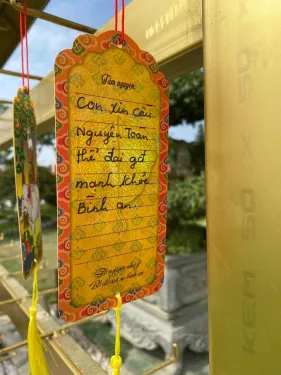 Tâm nguyện
Con xin cầu
Nguyện Toàn
thể đại gđ
mạnh khỏe
Bình an...
KEM 50 x 50